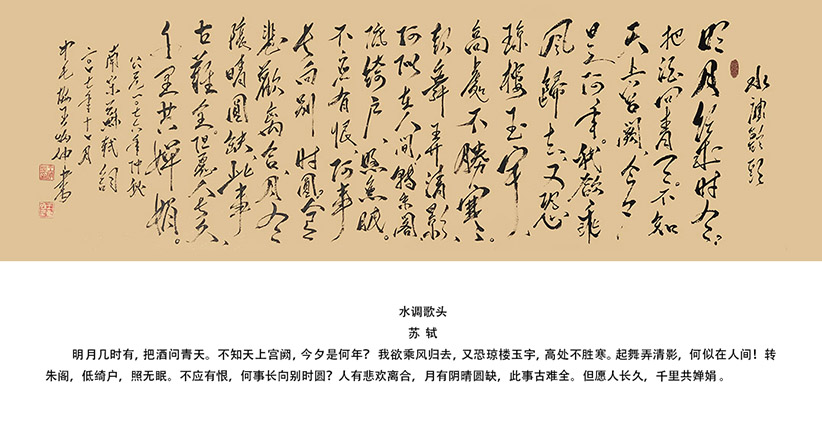 水調歌頭
明月幾時有。
把酒问青天。不知
天上宫阙，今夕
是何年。我欲乘
風歸去，又恐
瓊樓玉宇
高處不勝寒。
起舞弄清影，
何似在人間，轉朱阁
低綺户，照無眠。
不应有恨，何事
长向别时圆。人有
悲歡離合，月有
陰晴圓缺此事
古難全。但愿人长久，
千里共嬋娟。
南宋蘇軾詞
二〇〇七年十一月
水调歌头
苏 轼
明月几时有，把酒问青天。不知天上宫阙，今夕是何年？我欲乘风归去，又恐琼楼玉宇，高处不胜寒。起舞弄清影，何似在人间！转
朱阁，低绮户，照无眠。不应有恨，何事长向别时圆？人有悲欢离合，月有阴晴圆缺，此事古难全。但愿人长久，千里共婵娟。